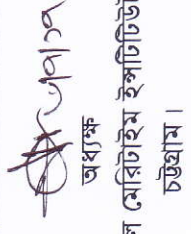 অধ্যক্ষ
ল মেরিটাইম ইন্সটিটিউ
চট্টগ্রাম।